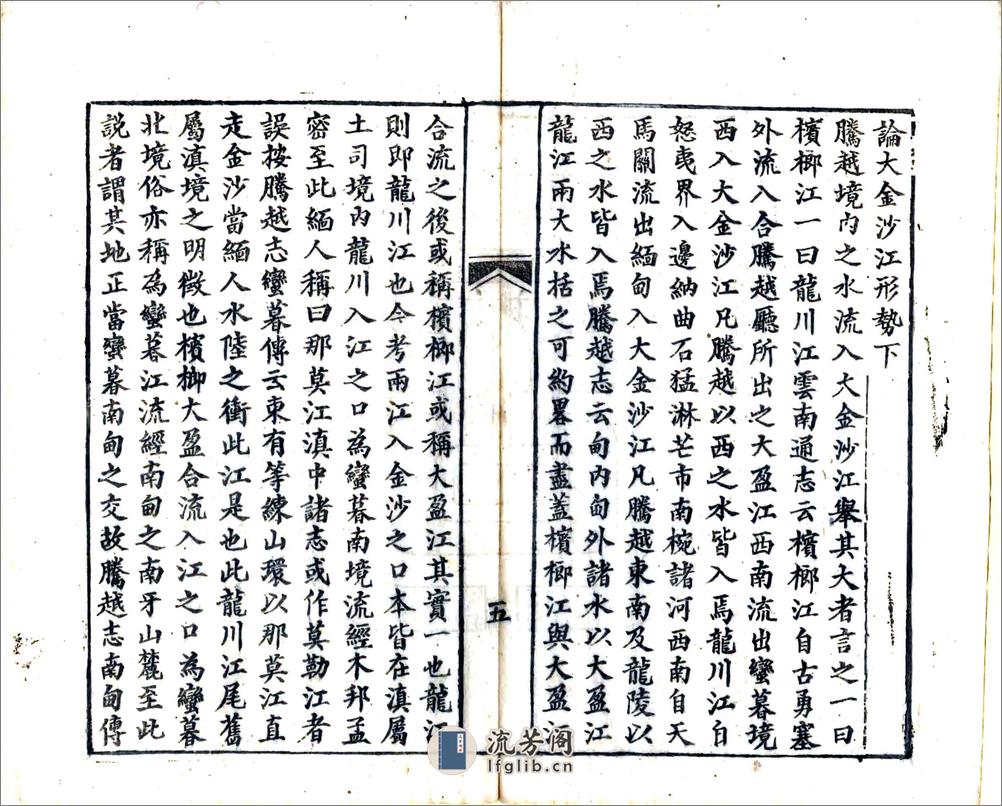 論大金沙江形勢下
騰越境內之水流入大金沙江舉其大者言之一曰
檳榔江一曰龍川江雲南通志云檳榔江自古勇塞
外流入合騰越廳所出之大盈江西南流出蠻暮境
西入大金沙江凡騰越以西之水皆入焉龍川江自
怒夷界入邊納曲石猛淋芒市南椀諸河西南自天
馬關流出緬甸入大金沙江凡騰越東南及龍陵以
西之水皆入焉騰越志云甸內甸外諸水以大盈江
龍江兩大水括之可約畧而盡蓋檳榔江與大盈江
五
合流之後或稱檳榔江或稱大盈江其實一也龍江
則即龍川江也今考兩江入金沙之口本皆在滇屬
土司境內龍川入江之口為蠻暮南境流經木邦孟
密至此緬人稱曰那莫江滇中諸志或作莫勒江者
誤按騰越志蠻暮傳云東有等練山環以那莫江直
走金沙當緬人水陸之衝此江是也此龍川江尾舊
屬滇境之明徵也檳榔大盈合流入江之口為蠻暮
北境俗亦稱為蠻暮江流經南甸之南牙山麓至此
說者謂其地正當蠻暮南甸之交故騰越志南甸傳
流芳阁
lfglib.cn